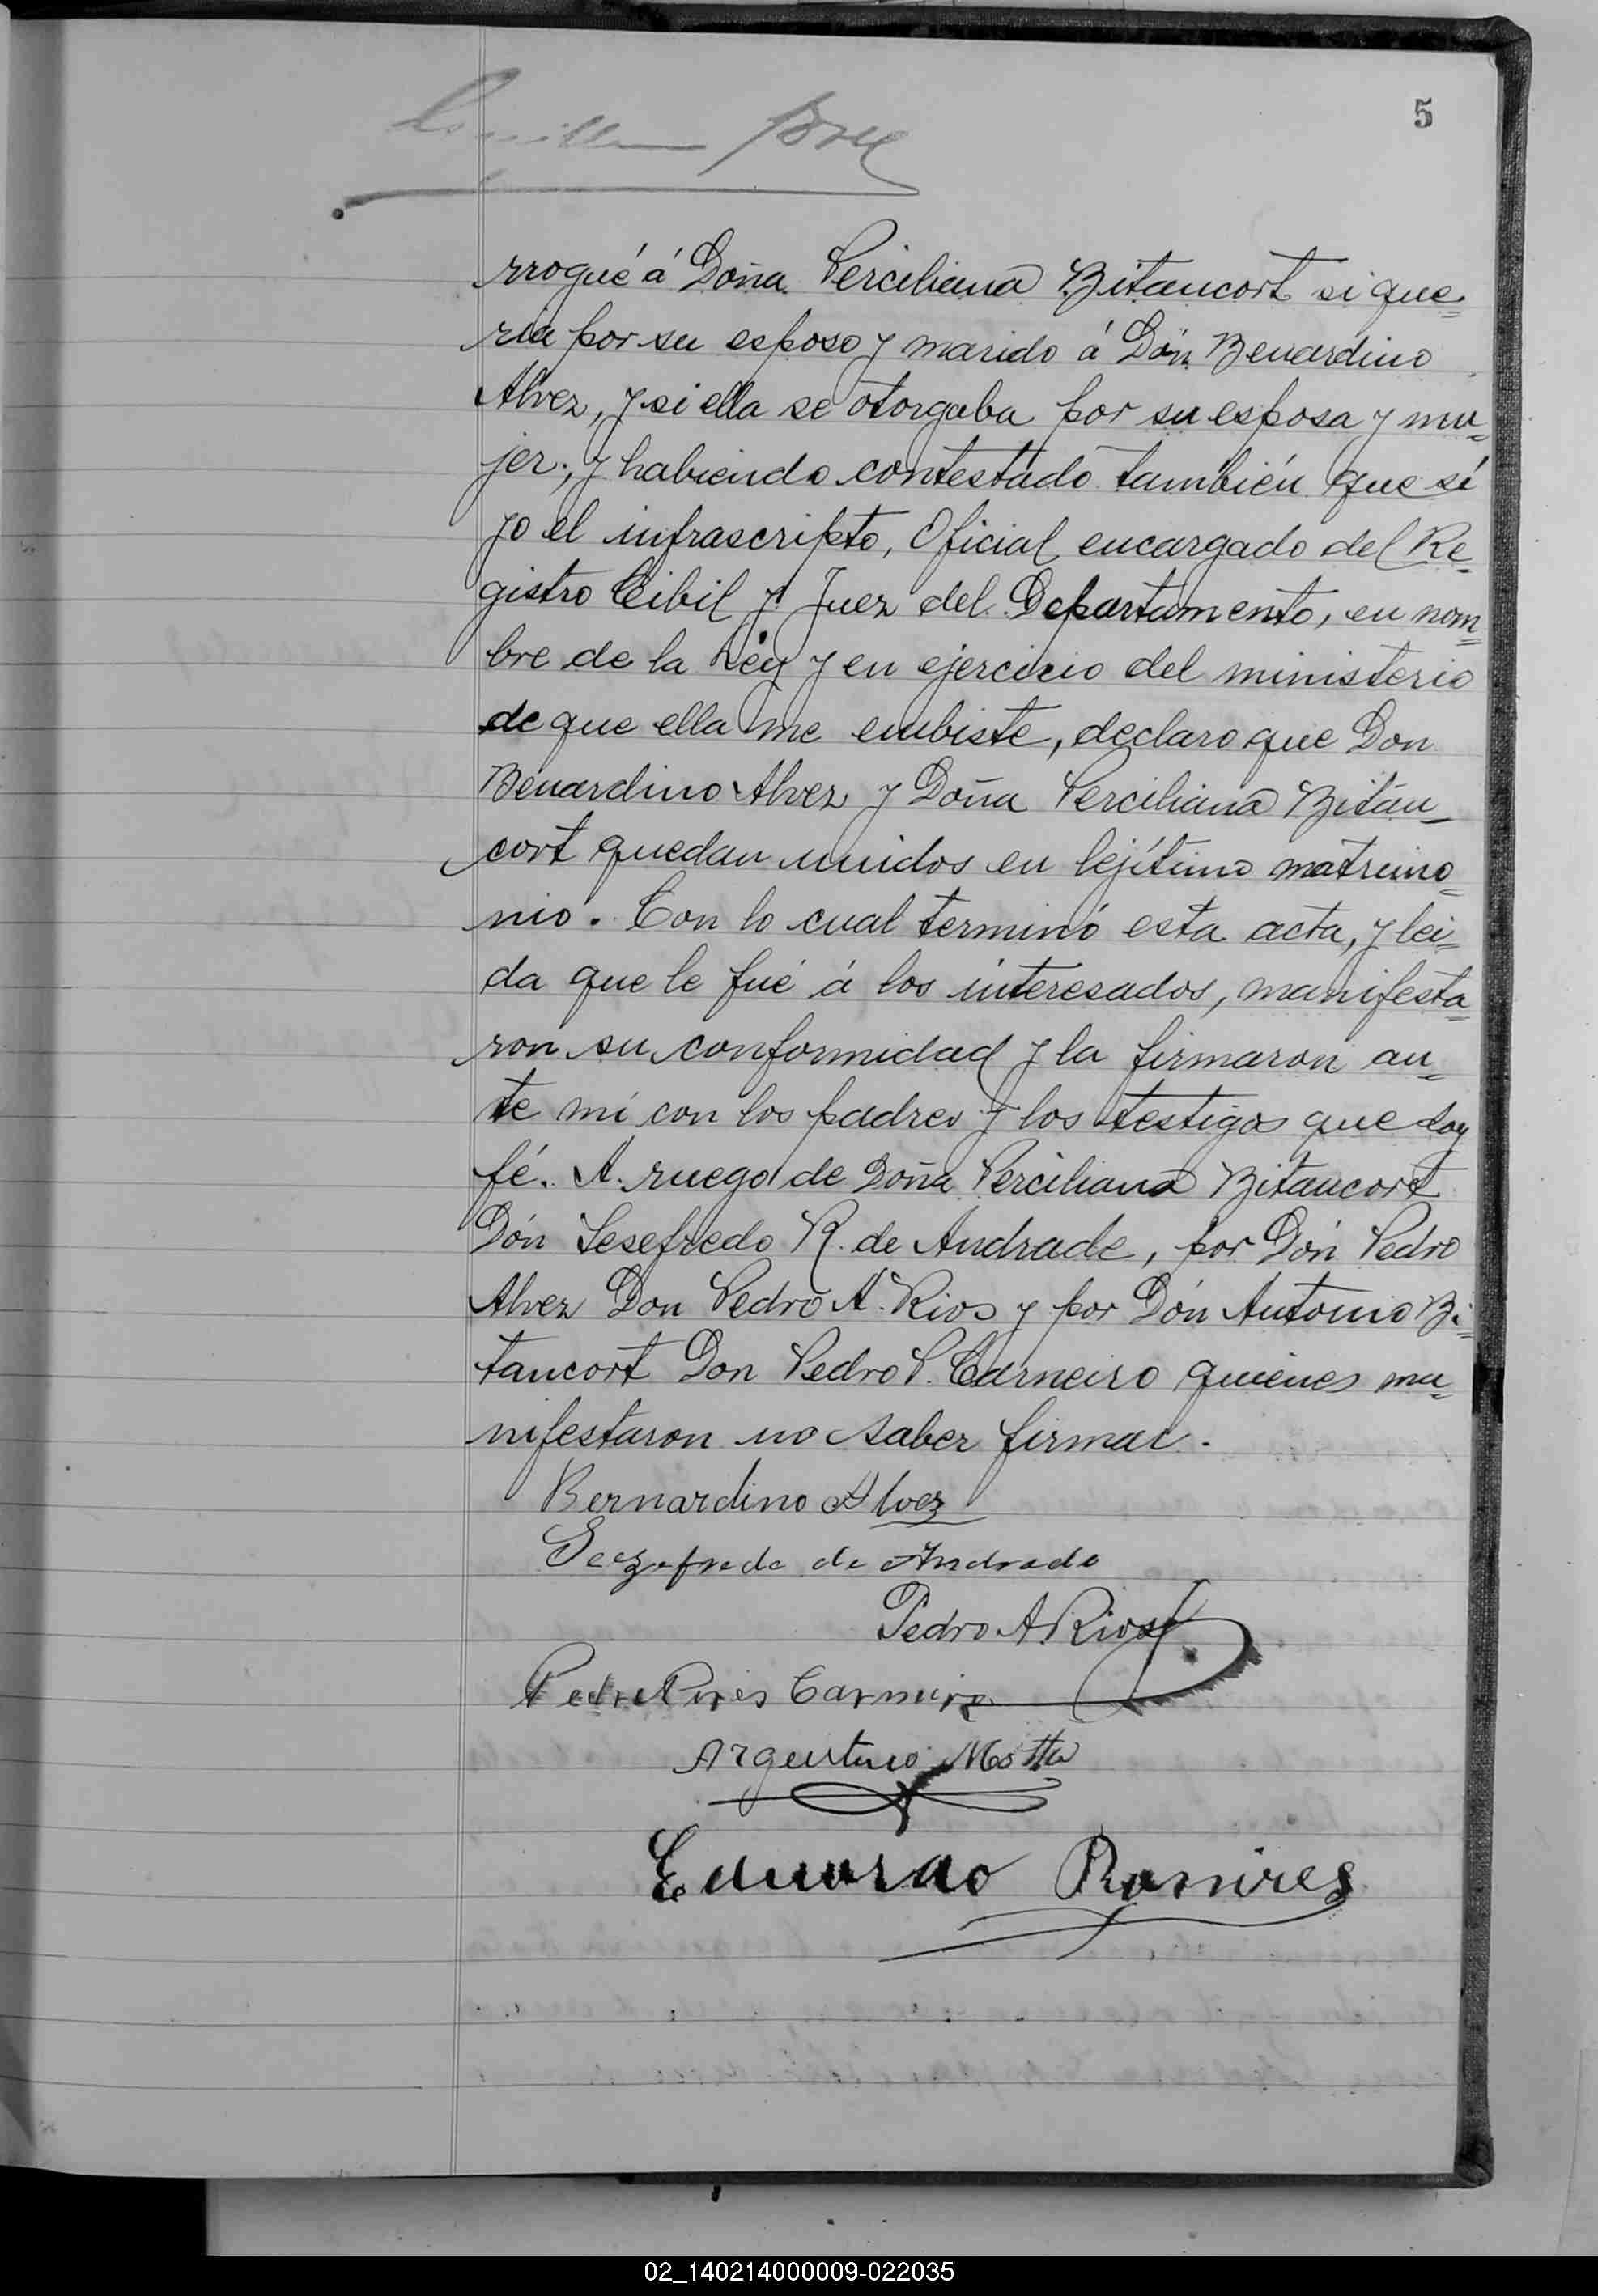 5
rrogué á Doña Perciliana Bitancort si que=
ria por su esposo y marido á Dón Benardino
Alvez, y si ella se otorgaba por su esposa y mu=
jer; y habiendo contestado también que sí
yo el infrascripto, Oficial encargado del Re=
gistro Cibil y Juez del Departamento, en nom=
bre de la Ley y en ejercicio del ministerio
de que ella me enbiste, declaro que Don
Benardino Alvez y Doña Perciliana Bitan_
cort quedan unidos en lejítimo matrimo=
nio. Con lo cual terminó esta acta, y lei=
da que le fué á los interesados, manifesta=
ron su conformidad y la firmaron an=
te mi con los padres y los testigos que doy
fé. A. ruego de Doña Perciliana Bitancort
Dón Sesefredo R. de Andrade, por Dón Pedro
Alvez Don Pedro A. Rios y por Dón Antonio Bi=
tancort Don Pedro P. Carneiro quienes ma=
nifestaron no saber firmar.
Bernardino Alvez
Sezefredo de Andrade
Pedro A Rios
Pedro Pires Carneiro
Argentino Motta
Eduardo Ramires
02_140214000009-022035